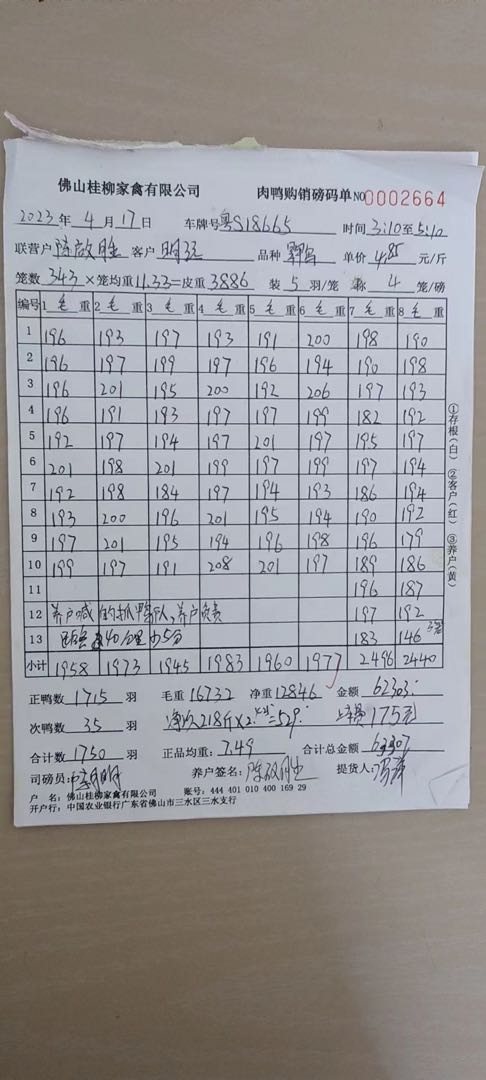 佛山桂柳家禽有限公司 肉鸭购销磅码单 NO 0002664
2023年4月17日 车牌号粤S18665 时间3:10至5:10
联营户 陈啟胜 客户 品种 单价4.85元/斤
笼数343×笼均重11.33=皮重3886 装5羽/笼 称4笼/磅
编号 1毛重 2毛重 3毛重 4毛重 5毛重 6毛重 7毛重 8毛重
1 196 193 197 193 191 200 198 190
2 196 197 199 197 196 194 190 198
3 196 201 195 200 192 206 197 193
4 196 191 193 197 197 199 182 192
5 192 197 194 197 201 197 195 197
6 201 198 201 199 197 199 197 194
7 192 198 184 197 194 193 186 194
8 193 200 196 201 195 194 190 192
9 197 201 195 194 196 198 196 179
10 199 197 191 208 201 197 189 186
11 196 187
12 养户喊的抓鸭队,养户负责 197 192
13 40公里 5分 183 146 3笼
小计 1958 1973 1945 1983 1960 1977 2496 2440
正鸭数1715羽 毛重16732 净重12846 金额62303
次鸭数35羽 净次218斤×2. =529 175元
合计数1750羽 正品均重:7.49 合计总金额63307
司磅员: 养户签名:陈啟胜 提货人:
户 名:佛山桂柳家禽有限公司 账号:444 401 010 400 169 29
开户行:中国农业银行广东省佛山市三水区三水支行
①存根(白) ②客户(红) ③养户(黄)